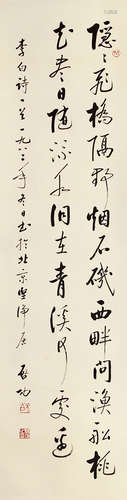 隱隱飛橋隔野烟石磯西畔問漁船桃
花盡日隨流水洞在青溪何處邊
李白詩一首一九八二年冬日書於北京 啟功